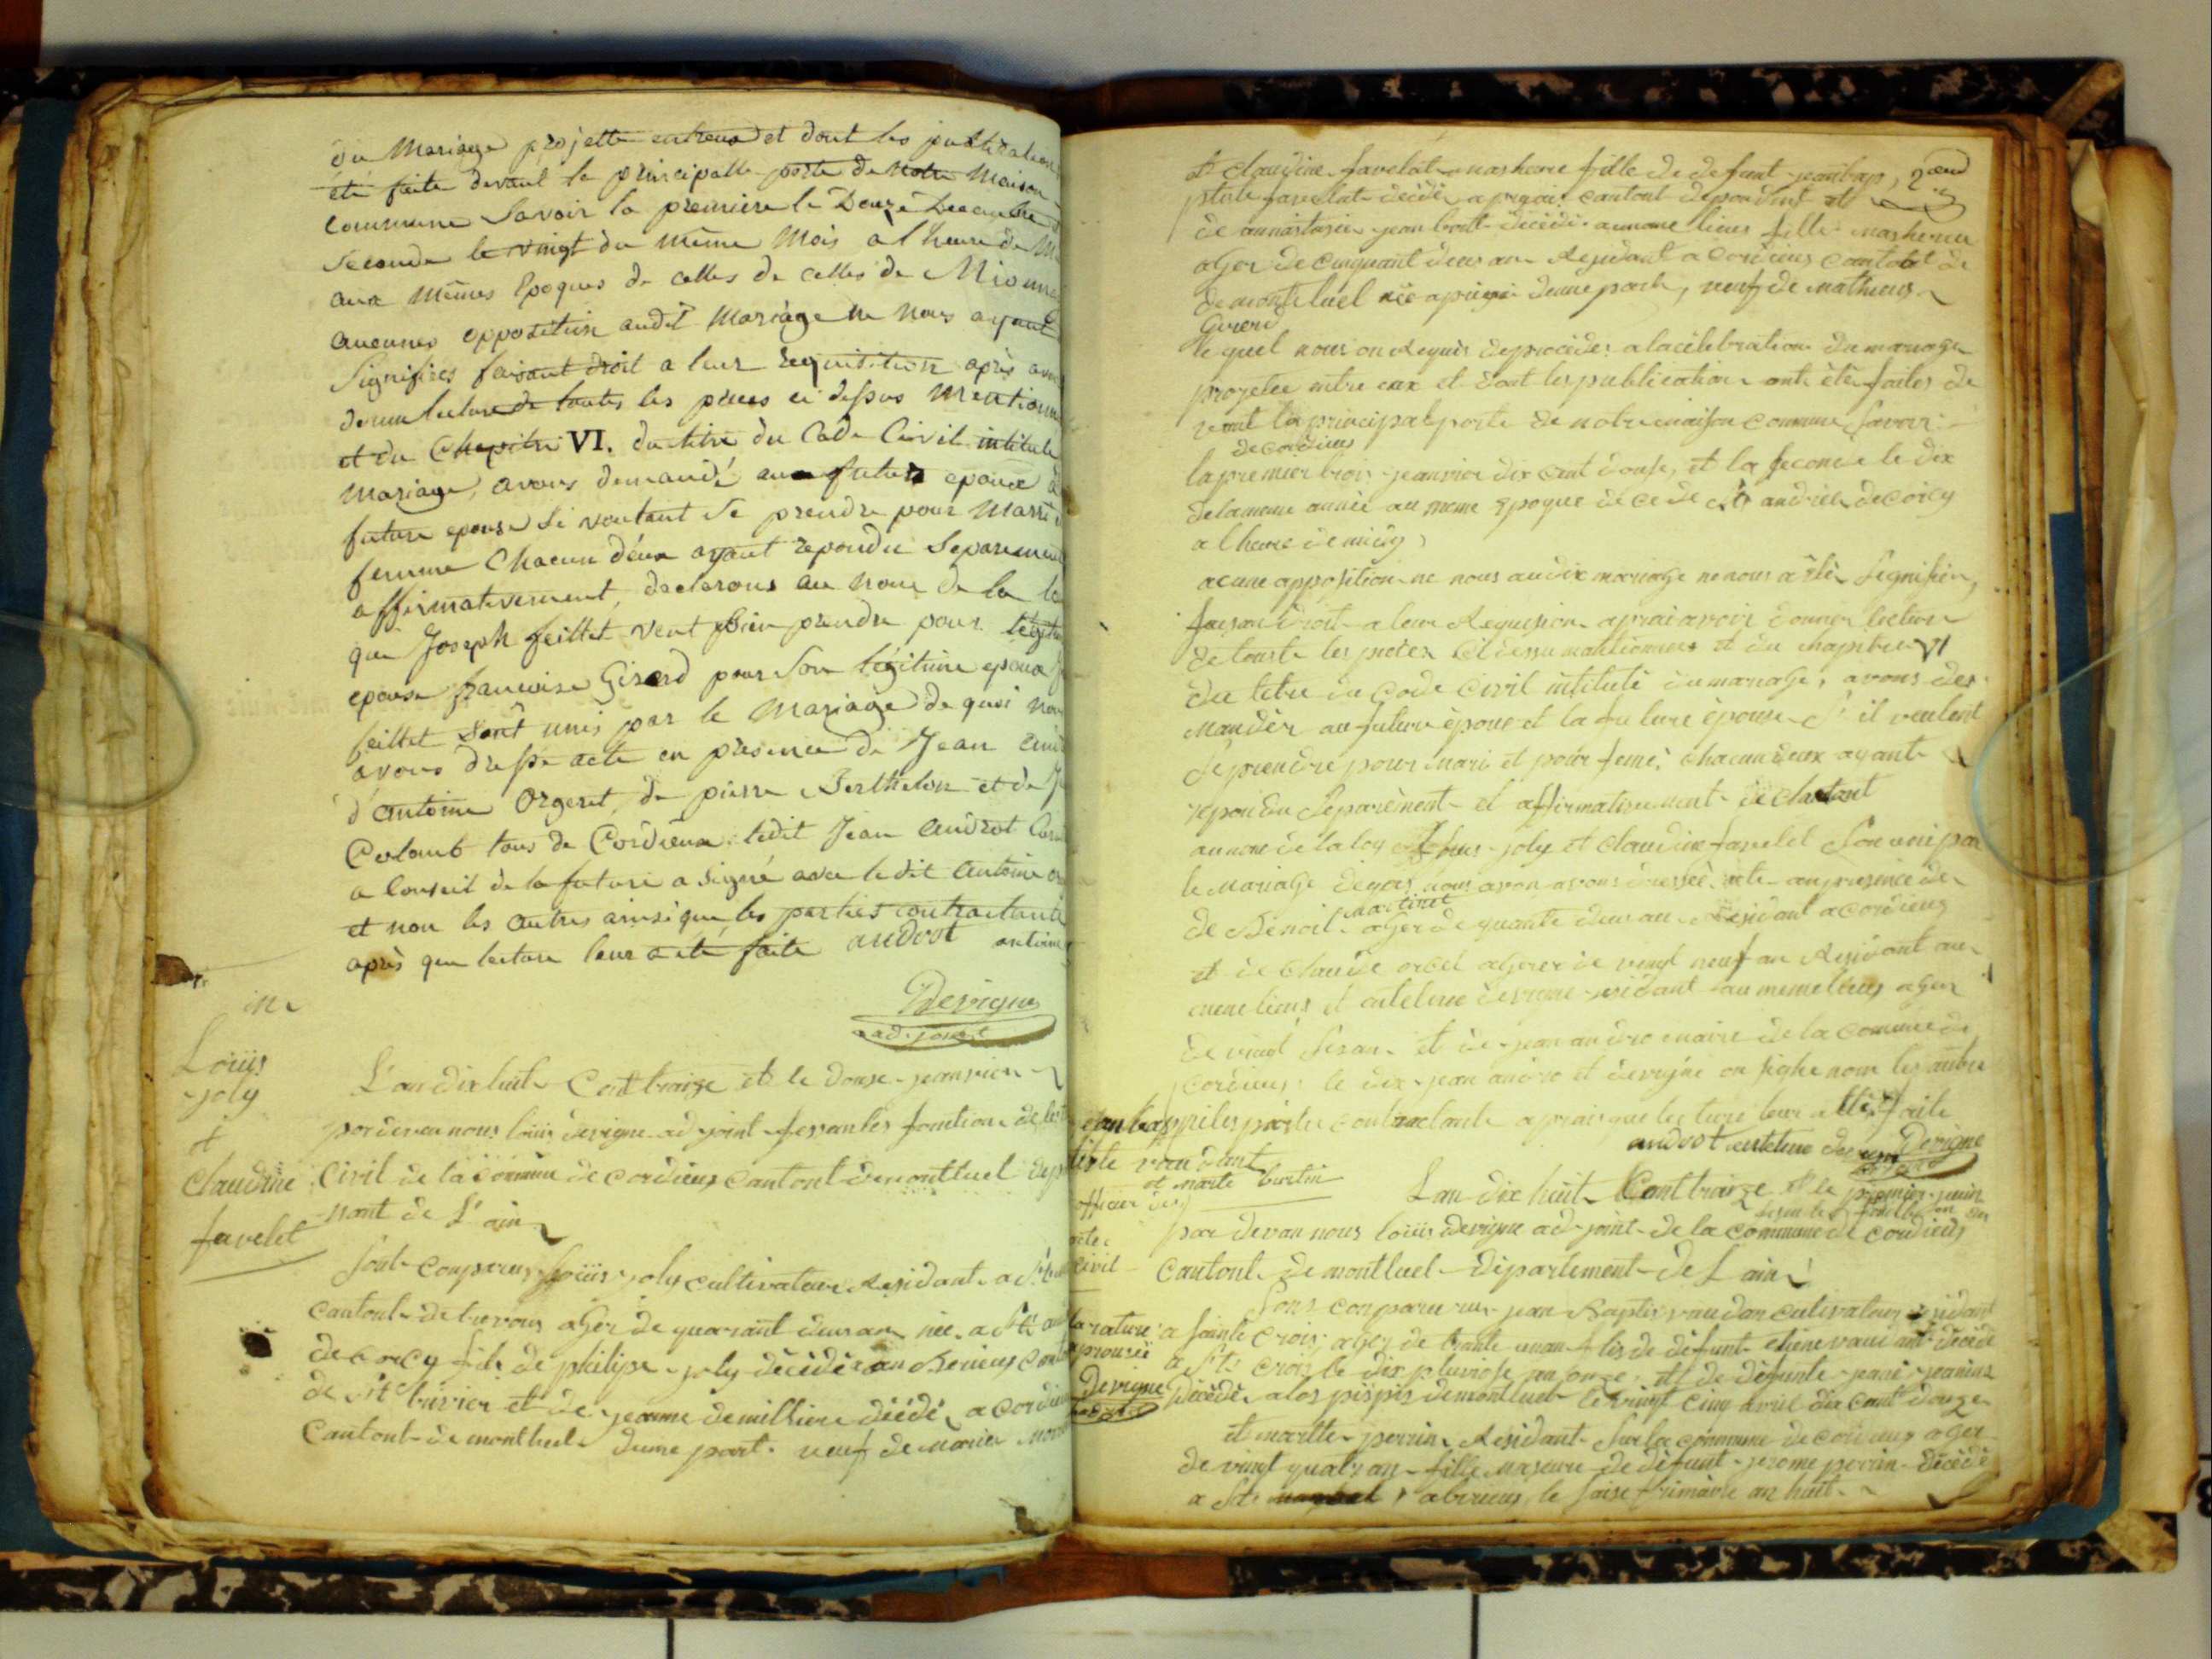 du Mariage projetté entreux et dont les publication
été faite devant la principalle porte de Notre Maison
Commune Savoir la premiere le Douze Decembre
Seconde le vingt du même Mois à l'heure de
aux Mêmes Epoques de celles de celles de Mionna
aucunes opposition audit Mariage ne Nous ayant
Signifiées faisant droit a leur Requisition après
donné lecture de toutes les pièces ci dessus Mention
et du Chapitre VI. du titre du Code Civil intitulé
Mariage, avons demandé au futur epoux à
future epouse Si voulant Se prendre pour Marri
femme Chacun d'eux ayant repondu Separement
affirmativement, declarons au Nom de la
que Joseph feillet veut bien prendre pour legit
epouse françoise Girard pour Son légitime epoux
feillet Sont unis par le Mariage de quoi
avons dressé acte en presence de Jean
d'antoine Orgeret, de pierre Berthelon et de
Colomb tous de Cordieux. ledit Jean Androt
a Conseil de la future a signé avec le dit Antoine
et non les autres ainsi que les parties contractante
après que lecture leur a été faite androt antoine
Devigne
adjoint
Loüis
joly
et
Claudine
favelet
L'an dix huit Cent traize et le douse jeanvier
pardevan nous loüis devigne adjoint fessant les fonction de
Civil de la commune de cordieux Cantont de montluel
nant de L'ain
Sont comparus loüis joly cultivateur Residant a
Cantont de trevoux agér de quarant deus an née a St
de corcy fils de philipe joly décédé au
de St trivier et de jeanne demilliere décédé a cordieu
Cantont de montluel dune part. veuf de marie
et Claudine favelet masheure fille de defunt jean bap, 2
tiste favelat décédé a prigai Cantont de et
de annastasie jean décédé aumeme lieus fille masheure
agér de cinquant deus an Residant a Cordieus cantont de
de montluel née a d'une part, veuf de mathieus
Girere
lequel nous on Requis de procéder a la célébration du mariage
projetée entre eux et dont les publication ont été faites de
vant la principale porte de notre maison commune Savoir
de cordieus
la premier trois jeanvier dix cent douse, et la seconde le dix
de la meme année au meme Epoque de ce de St andrieu de corcy
a l'heure de midy
acune apposition ne nous audix mariage ne nous a été Signifiée,
faisan droit a leur Requision apriai avoir donner lecture
de toute les pieces Ci dessu mantionnes et du chapitre VI
du titre du Code Civil intitulé du mariage, avons de
mander au future époux et la future épouse S'il veulent
Se prendre pour mari et pour feme, chacun deux ayant
repondu Separément et affirmativement déclarant
au nom de la loy loüis joly et Claudine favelet Son uni par
le Mariage de quoi nous avon avons dressée acte an presence de
martinet
de Benoit agér de quante deus an Residant a cordieus
et de Claude orcel agerer de vingt neuf an Residant au
meme lieus et antelme devigne residant au meme lieus ager
de vingt Sis an et de jean andro maire de la commune de
Cordieus le dix jean andro et devigne on signé nom les autre
les partie contractante apriais que lecture leur a été faite
androt antelme devigne Devigne
jean bap
tiste vaudant
et marte perrin
officier des
acte
civil
L'an dix huit Cent traize et le premier juin
par devan nous loüis devigne adjoint de la commune de cordieus
Cantont de montluel département de L'ain
Sont comparu jean Baptis vaudan cultivateur residant
a sainte Croix, agez de trante unan fils de défunt etiene vaudant décédé
a Ste Croix le dix pluviose an onze, et de défunte jeanine
décédé a los pispis de montluel le vingt cinq avril dix cent douze
et marthe perrin Residant Sur la commune de Cordieux ager
de vingt quatr an fille mageure de défunt jerome perrin décédé
a a birieux le saise frimaire an huit
la rature
aprouvée
Devigne
adjoint